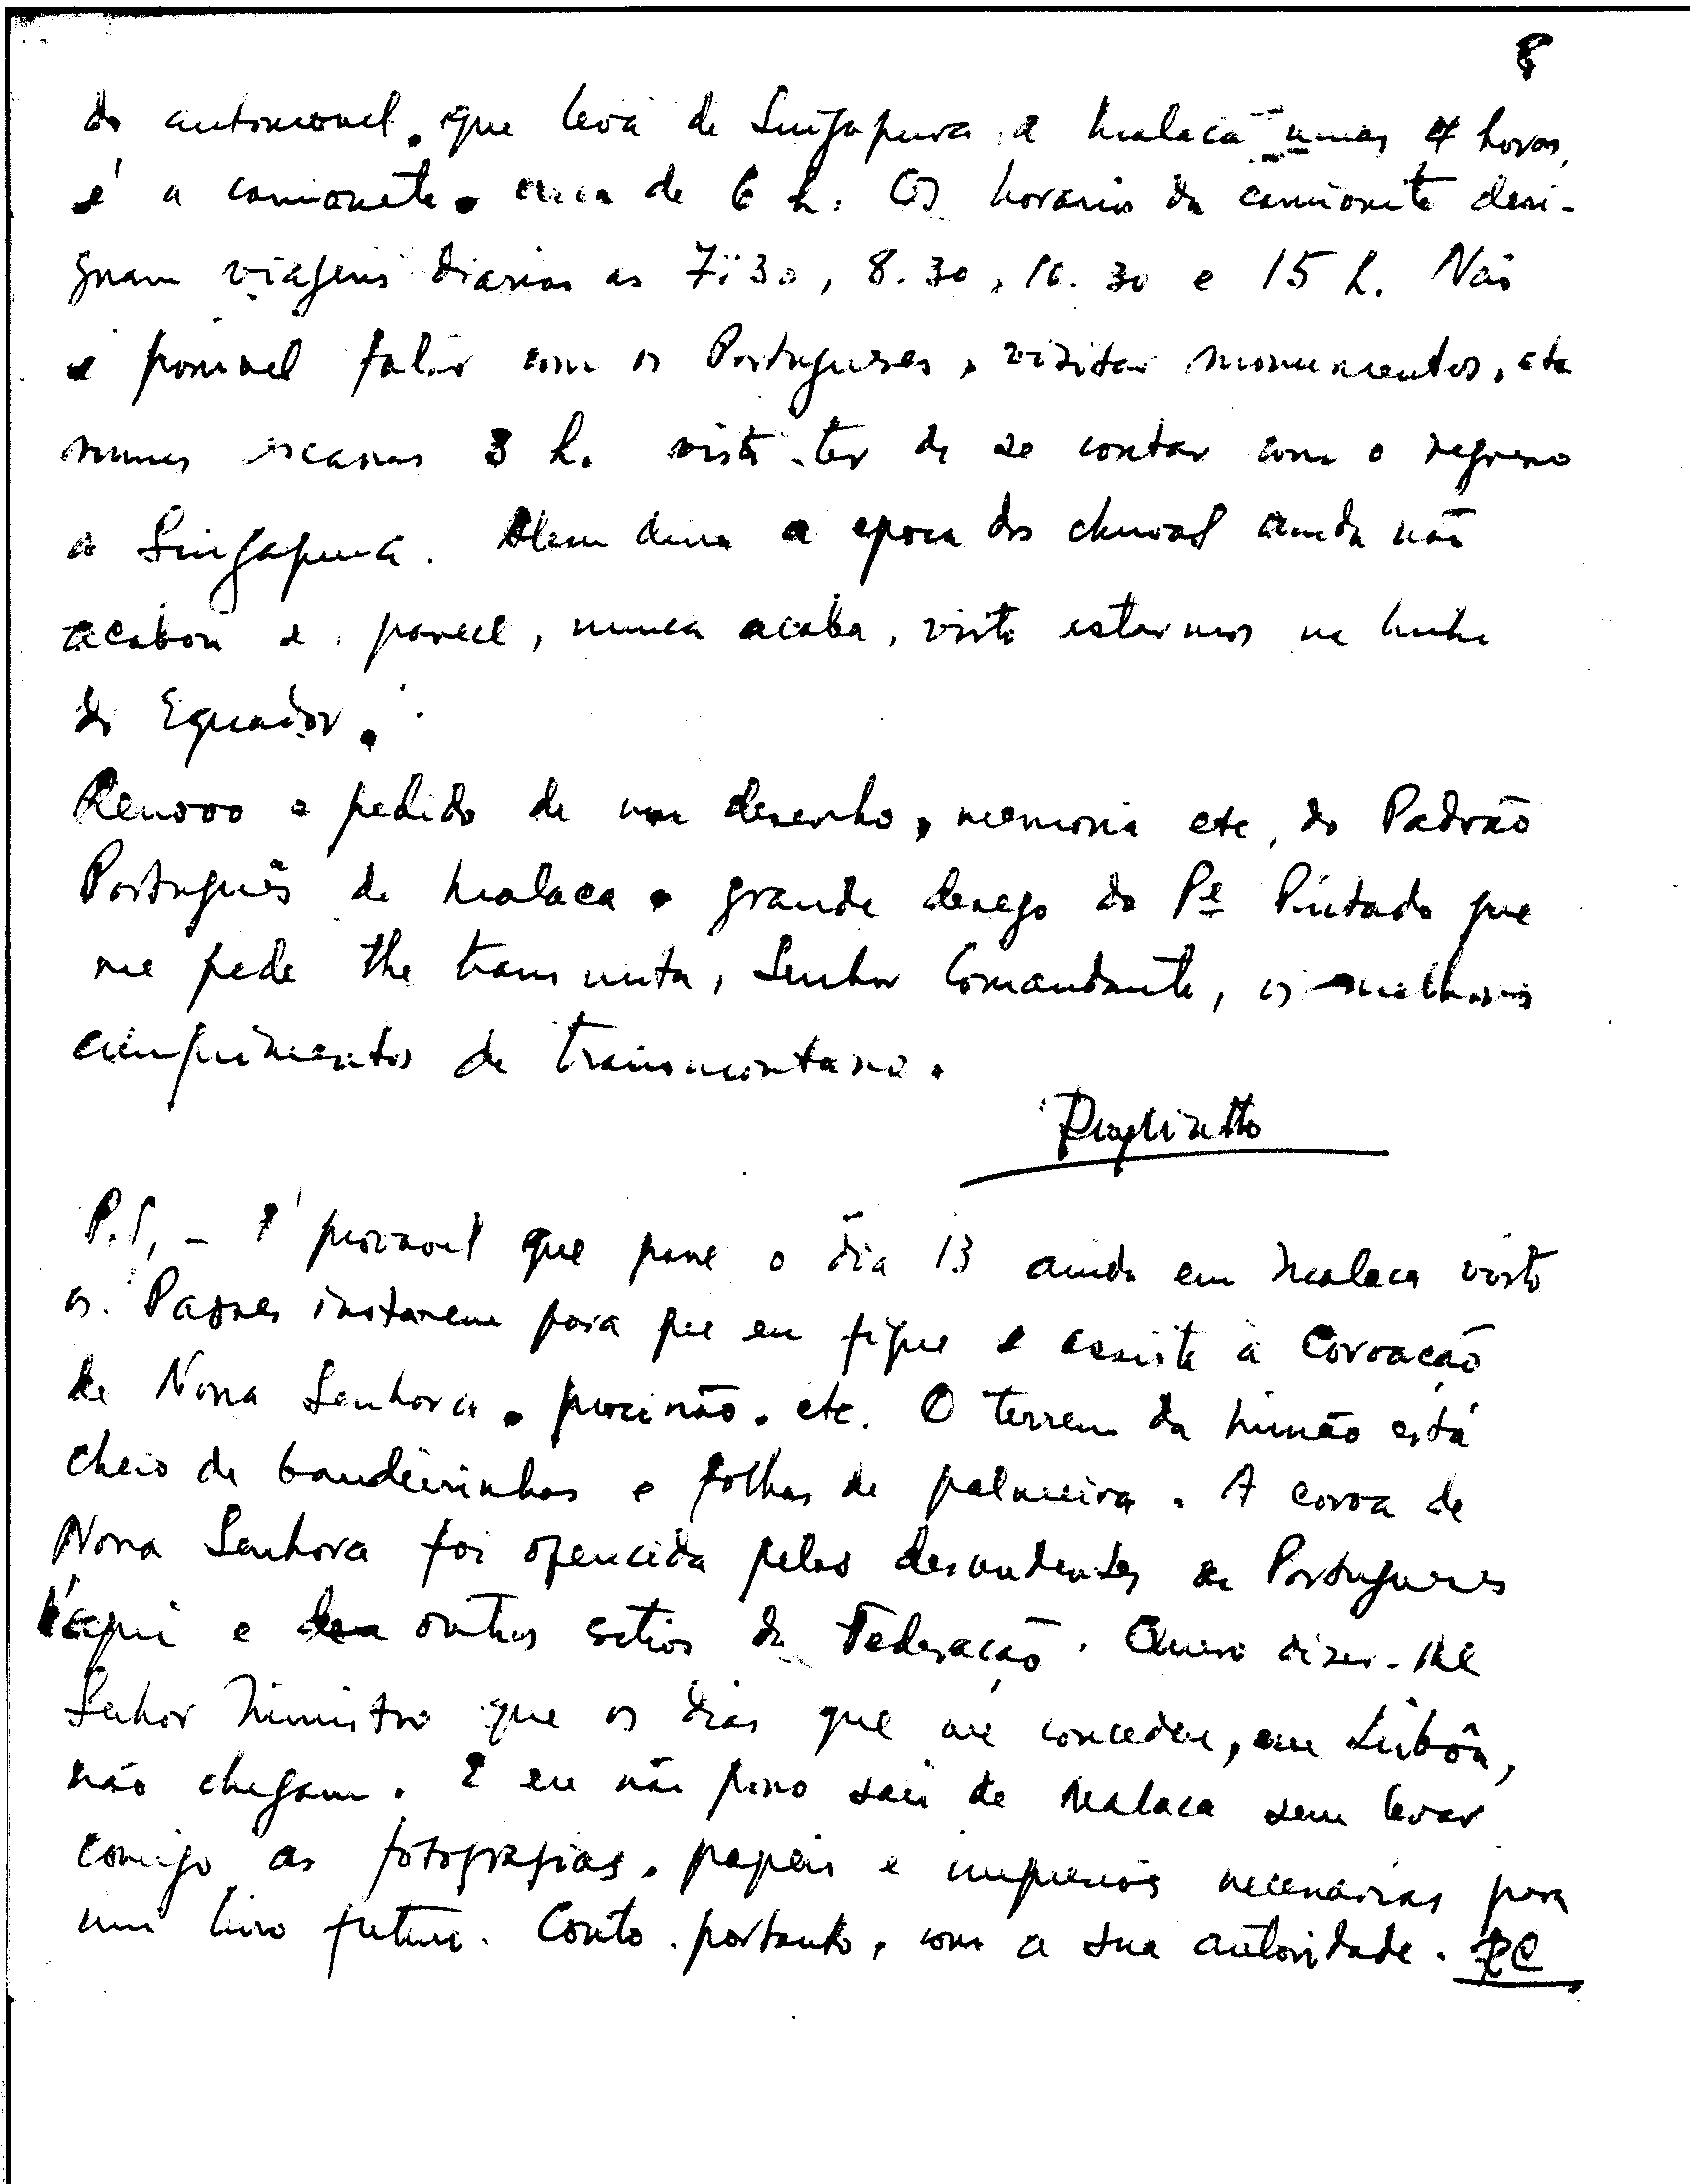 8
do automovel, que leva de Singapura a Malaca umas 4 horas,
é a camionete, cerca de 6 h. Os horarios da camionete desi-
gnam viagens diarias as 7:30, 8.30, 10.30 e 15 h. Não
é possivel falar com os Portugueses, visitar monumentos, etc
numas escassas 3 h. visto ter de se contar com o regresso
a Singapura. Alem disso a epoca das chuvas ainda não
acabou e, parece, nunca acaba, visto estarmos na linha
do Equador.
Renovo o pedido de um desenho, memoria etc, do Padrão
Português de Malaca, grande desejo do Pe Pintado que
me pede lhe transmita, Senhor Comandante, os melhores
cumprimentos de transmontano.
P.S. - É provavel que passe o dia 13 ainda em Malaca visto
os Padres instarem para que eu fique e assista à Coroação
de Nossa Senhora, procissão, etc. O terreno da Missão está
cheio de bandeirinhas e folhas de palmeira. A coroa de
Nossa Senhora foi oferecida pelos descendentes de Portugueses
d'aqui e de outros sitios da Federação. Quero dizer-lhe
Senhor Ministro que os dias que me concedeu, em Lisbôa,
não chegam. E eu não posso sair de Malaca sem levar
comigo as fotografias, papeis e impressos necessarias para
um livro futuro. Conto, portanto, com a sua autoridade. RC